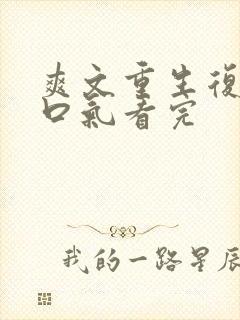 爽文重生復
口氣看完
我的一路星辰